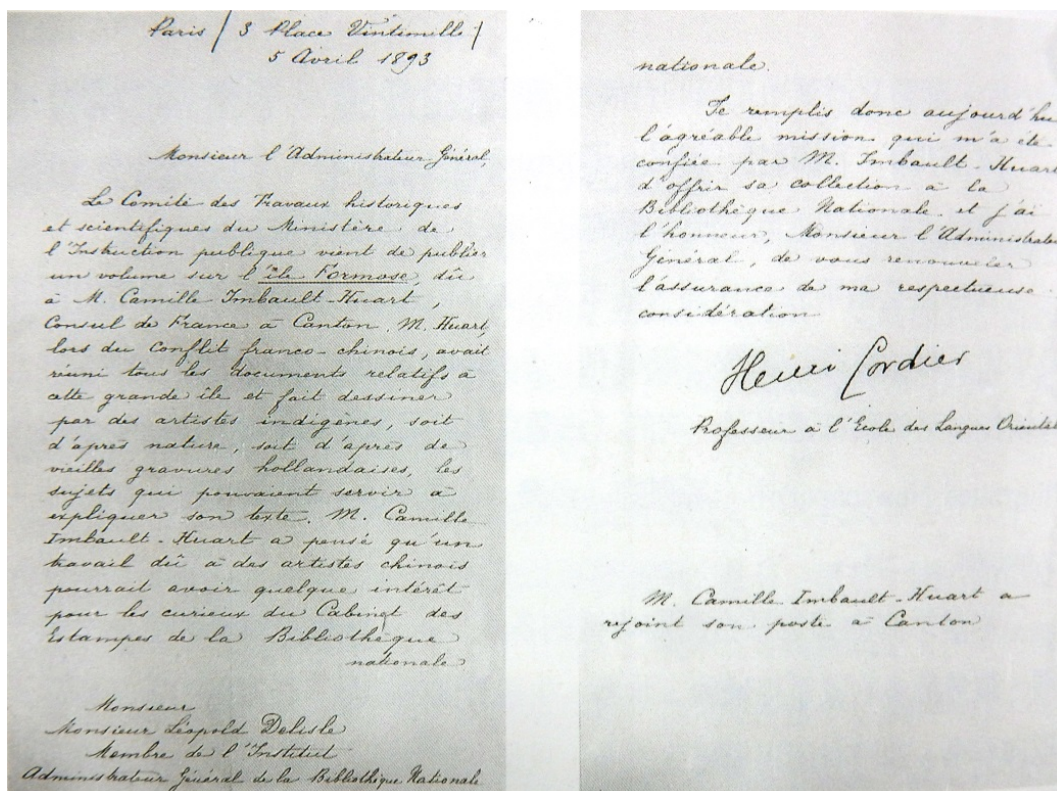 Paris / 3 Place Vintimille /
5 Avril 1893
Monsieur l'Administrateur Général,
Le Comité des Travaux historiques
et scientifiques du Ministère de
l'Instruction publique vient de publier
un volume sur l'île Formose, dû
à M. Camille Imbault-Huart,
Consul de France à Canton. M. Huart,
lors du conflit franco-chinois, avait
réuni tous les documents relatifs à
cette grande île et fait dessiner
par des artistes indigènes, soit
d'après nature, soit d'après de
vieilles gravures hollandaises, les
sujets qui pouvaient servir à
expliquer son texte. M. Camille
Imbault-Huart a pensé qu'un
travail dû à des artistes chinois
pourrait avoir quelque intérêt
pour les curieux du Cabinet des
Estampes de la Bibliothèque
nationale
Monsieur
Monsieur Léopold Delisle
Membre de l'Institut
Administrateur Général de la Bibliothèque Nationale
nationale.
Je remplis donc aujourd'hu
l'agréable mission qui m'a été
confiée par M. Imbault-Huart
d'offrir sa collection à la
Bibliothèque Nationale et j'ai
l'honneur, Monsieur l'Administrateu
Général, de vous renouveler
l'assurance de ma respectueuse
considération
Henri Cordier
Professeur à l'Ecole des Langues Orientale
M. Camille Imbault-Huart a
rejoint son poste à Canton